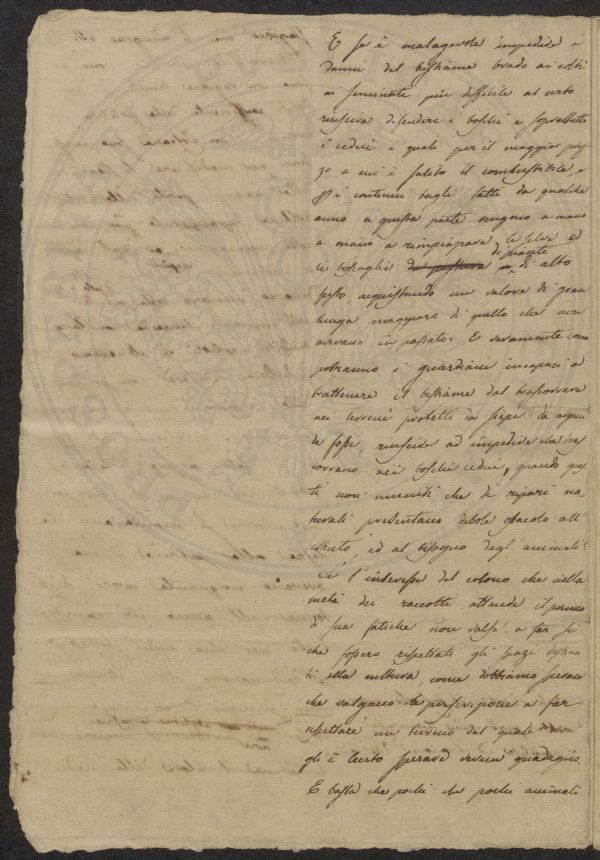 E se è malagevole impedire i
danni del bestiame brado ai colti
ai seminati più difficile al certo
riuscirà difendere i boschi e soprattutto
i cedui i quali per il maggior prez
zo a cui è salito il combustibile, e
i continui tagli fatti da qualche
anno a questa parte vengono a mano
a mano a rimpiazzare le selve ed
le boscaglie da pastura di piante di alto
fusto acquistando un valore di gran
lunga maggiore di quello che non
avevano in passato. E veramente come
potranno i guardiani incapaci a
trattenere il bestiame dal trascorrere
nei terreni protetti da siepi da argini
da fossi, riuscire ad impedire che tras
corrano nei boschi cedui, quando ques
ti non muniti che di ripari na
turali presentano debole ostacolo all'
istinto, ed al bisogno degl'animali?
Se l'interesse del colono che nella
metà dei raccolti attende il premio
a sue fatiche non valse a far sì
che fossero rispettati gli spazi destina
ti alla cultura, come dobbiamo sperare
che valgano le prescrizioni a far
rispettare un terreno dal quale non
gli è lecito sperare verun guadagno.
E basta che pochi che pochi animali